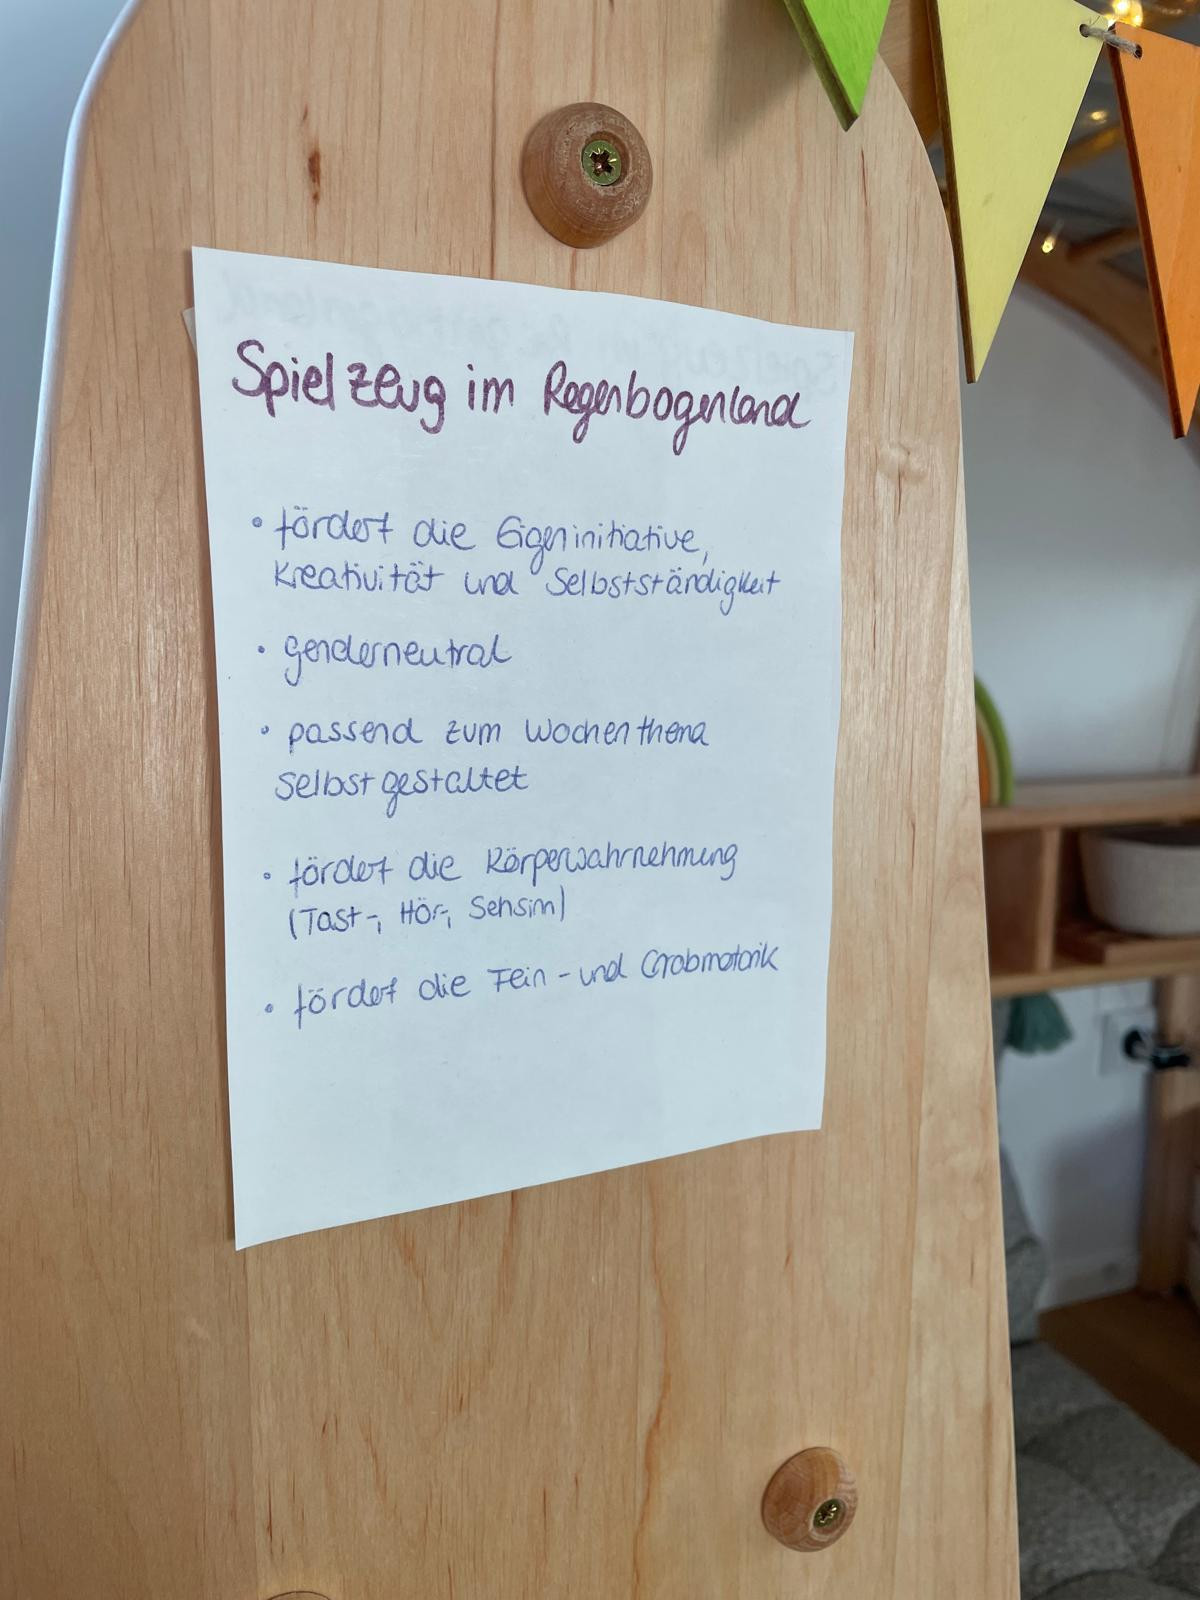 Spielzeug im Regenbogenland
• fördert die Eigeninitiative,
Kreativität und Selbstständigkeit
• genderneutral
• passend zum Wochenthema
selbst gestaltet
• fördert die Körperwahrnehmung
(Tast-, Hör-, Sehsinn)
• fördert die Fein- und Grobmotorik